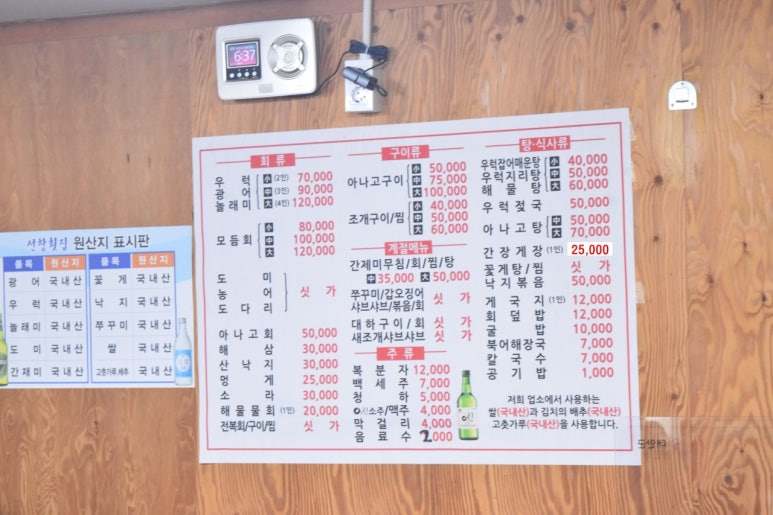 6:37
회 류
우 럭 小 (2인) 70,000
광 어 中 (3인) 90,000
놀래미 大 (4인) 120,000
모듬회 小 80,000
中 100,000
大 120,000
도 미
농 어 싯 가
도 다 리
아 나 고 회 50,000
해 삼 30,000
산 낙 지 30,000
멍 게 25,000
소 라 30,000
해 물 물 회 (1인) 20,000
전복회/구이/찜 싯 가
구이류
아나고구이 小 50,000
中 75,000
大 100,000
조개구이/찜 小 40,000
中 50,000
大 60,000
계절메뉴
간제미무침/회/찜/탕
中 35,000 大 50,000
쭈꾸미/갑오징어
샤브샤브/볶음/회 싯 가
대 하 구 이 / 회 싯 가
새조개샤브샤브 싯 가
주 류
복 분 자 12,000
백 세 주 7,000
청 하 5,000
소주/맥주 4,000
막 걸 리 4,000
음 료 수 2,000
탕·식사류
우럭잡어매운탕 小 40,000
우럭지리탕 中 50,000
해 물 탕 大 60,000
우 럭 젖 국 50,000
아 나 고 탕 中 50,000
大 70,000
간 장 게 장 (1인) 25,000
꽃 게 탕 / 찜 싯 가
낙 지 볶 음 50,000
게 국 지 (1인) 12,000
회 덮 밥 12,000
굴 밥 10,000
북어해장국 7,000
칼 국 수 7,000
공 기 밥 1,000
저희 업소에서 사용하는
쌀(국내산)과 김치의 배추(국내산)
고춧가루(국내산)을 사용합니다.
선창횟집 원산지 표시판
품목 원산지 품목 원산지
광 어 국내산 꽃 게 국내산
우 럭 국내산 낙 지 국내산
놀래미 국내산 쭈꾸미 국내산
도 미 국내산 쌀 국내산
간재미 국내산 고춧가루,배추 국내산